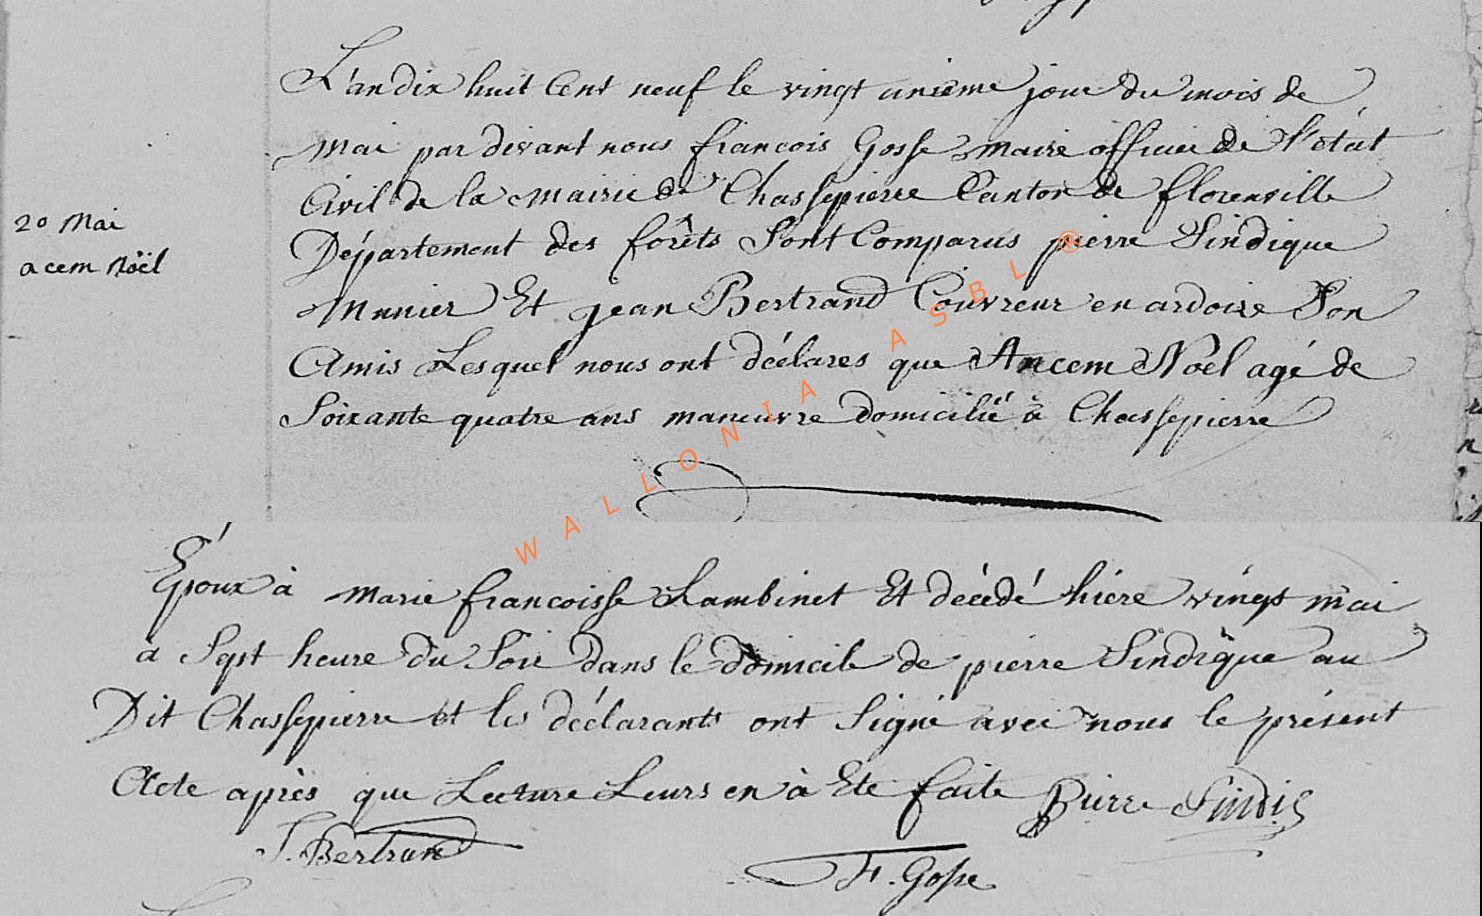 20 Mai
acem Noël
L'an dix huit Cent neuf le vingt unième jour du mois de
Mai par devant nous françois Gosse maire officier de l'état
Civil de la mairie de Chassepierre Canton de florenville
Département des forêts Sont Comparus pierre Sindique
Munier Et jean Bertrand Couvreur en ardoise Son
Amis Lesquel nous ont déclares que Ancem Noël agé de
Soixante quatre ans maneuvre domicilié à Chassepierre
Époux à marie francoisse Lambinet Et décédé hière vingt mai
a Sept heure du Soir dans le domicile de pierre Sindique au
Dit Chassepierre et les déclarants ont Signé avec nous le présent
Acte après que Lecture Leurs en à Eté faite Pierre Sindic
J. Bertrand
F. Gosse
WALLONIA ASBL ®